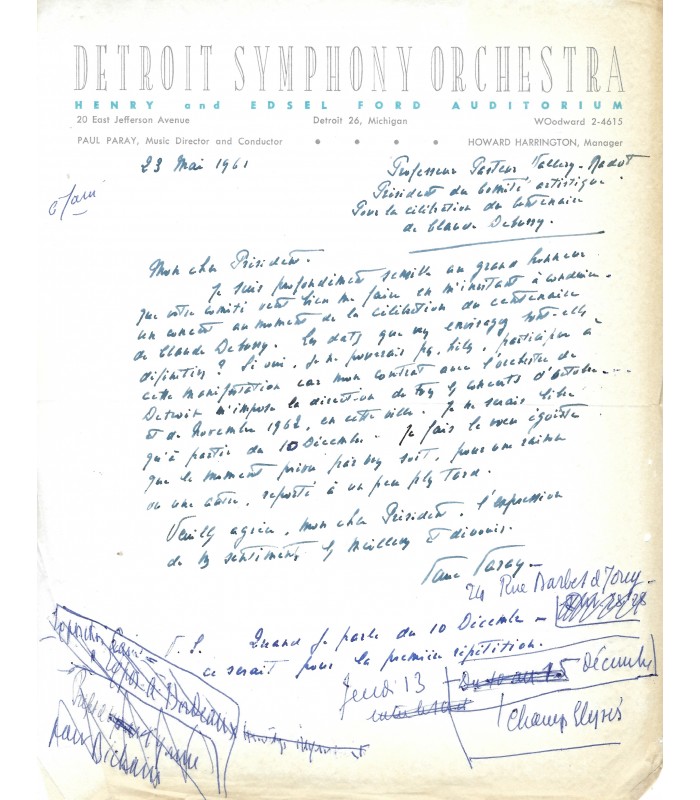 DETROIT SYMPHONY ORCHESTRA
HENRY and EDSEL FORD AUDITORIUM
20 East Jefferson Avenue Detroit 26, Michigan WOodward 2-4615
PAUL PARAY, Music Director and Conductor HOWARD HARRINGTON, Manager
23 Mai 1961
Professeur Pasteur Vallery-Radot
Président du Comité artistique
Pour la célébration du Centenaire
de Claude Debussy.
Mon cher Président.
Je suis profondément sensible au grand honneur
que votre Comité veut bien me faire en m'invitant à conduire
un concert au moment de la célébration du centenaire
de Claude Debussy. Les dates que vous envisagez sont-elles
définitives ? Si oui, je ne pourrais pas, hélas, participer à
cette manifestation car mon contrat avec l'orchestre de
Detroit m'impose la direction de tous les concerts d'octobre
et de Novembre 1962, en cette ville. Je ne serais libre
qu'à partir du 10 Décembre. Je fais le vœu égoïste
que le moment prévu par vous soit, pour une raison
ou une autre, reporté à un peu plus tard.
Veuillez agréer, mon cher Président, l'expression
de mes sentiments les meilleurs et dévoués.
Paul Paray
24 Rue Barbet de Jouy
P.S. Quand je parle du 10 Décembre
ce serait pour la première répétition.
Jeudi 13
Du 10 au 15 Décembre
Champs Elysés
à Bordeaux